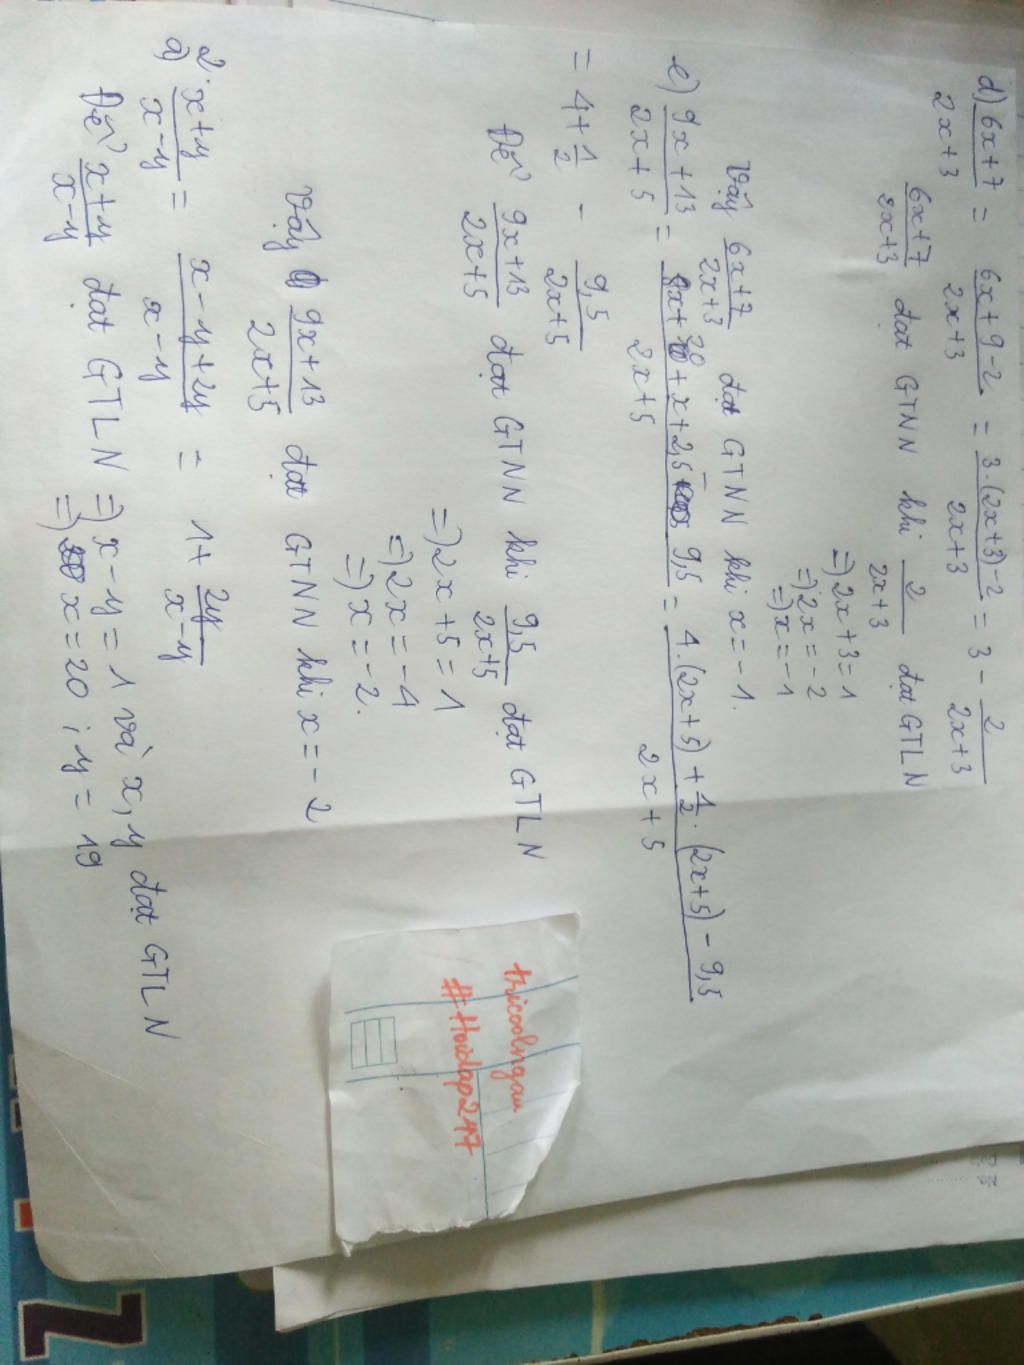 d) 6x+7/2x+3 = 6x+9-2/2x+3 = 3.(2x+3)-2/2x+3 = 3 - 2/2x+3
6x+7/2x+3 đạt GTNN khi 2/2x+3 đạt GTLN
=> 2x+3=1
=> 2x=-2
=> x=-1
Vậy 6x+7/2x+3 đạt GTNN khi x=-1.
e) 9x+13/2x+5 = 8x+20+x+2,5-9,5/2x+5 = 4.(2x+5)+1/2.(2x+5)-9,5/2x+5
= 4+1/2 - 9,5/2x+5
Để 9x+13/2x+5 đạt GTNN khi 9,5/2x+5 đạt GTLN
=> 2x+5=1
=> 2x=-4
=> x=-2.
Vậy 9x+13/2x+5 đạt GTNN khi x=-2
2.
a) x+y/x-y = x-y+2y/x-y = 1+ 2y/x-y
Để x+y/x-y đạt GTLN => x-y=1 và x,y đạt GTLN
=> x=20; y=19
thicoolngau
#Hoidap247